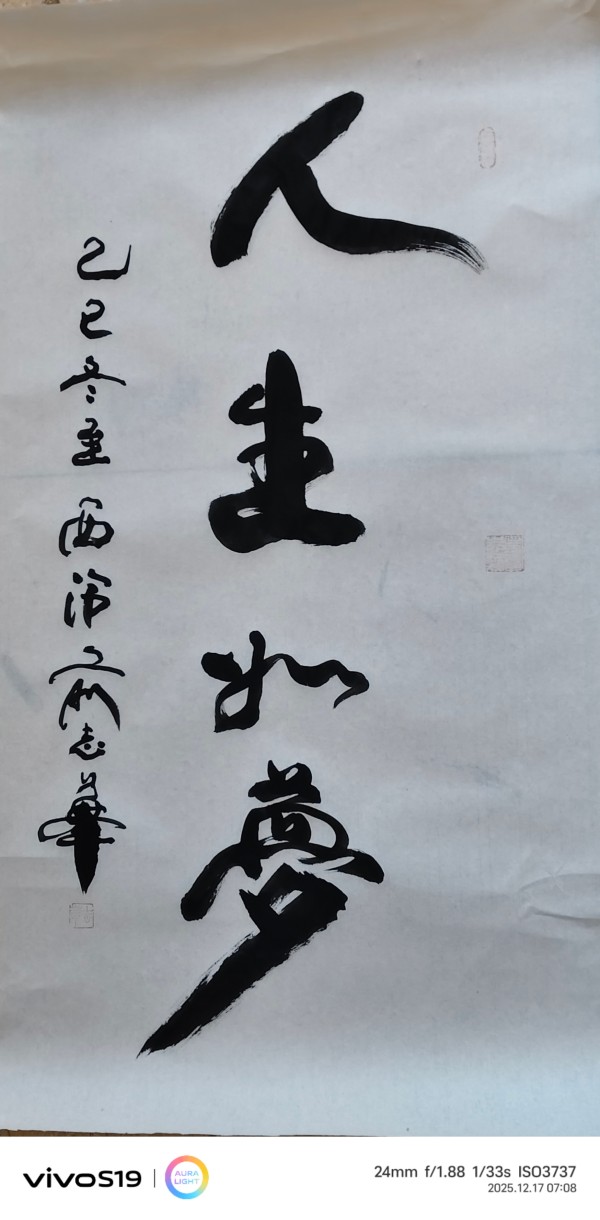 人生如夢
乙巳冬至 西 志華
vivo S19
AURA LIGHT
24mm f/1.88 1/33s ISO3737
2025.12.17 07:08